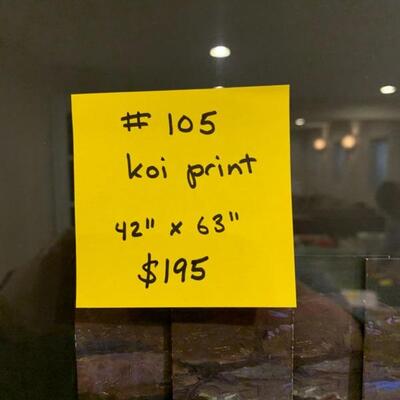 # 105
koi print
42" x 63"
$195